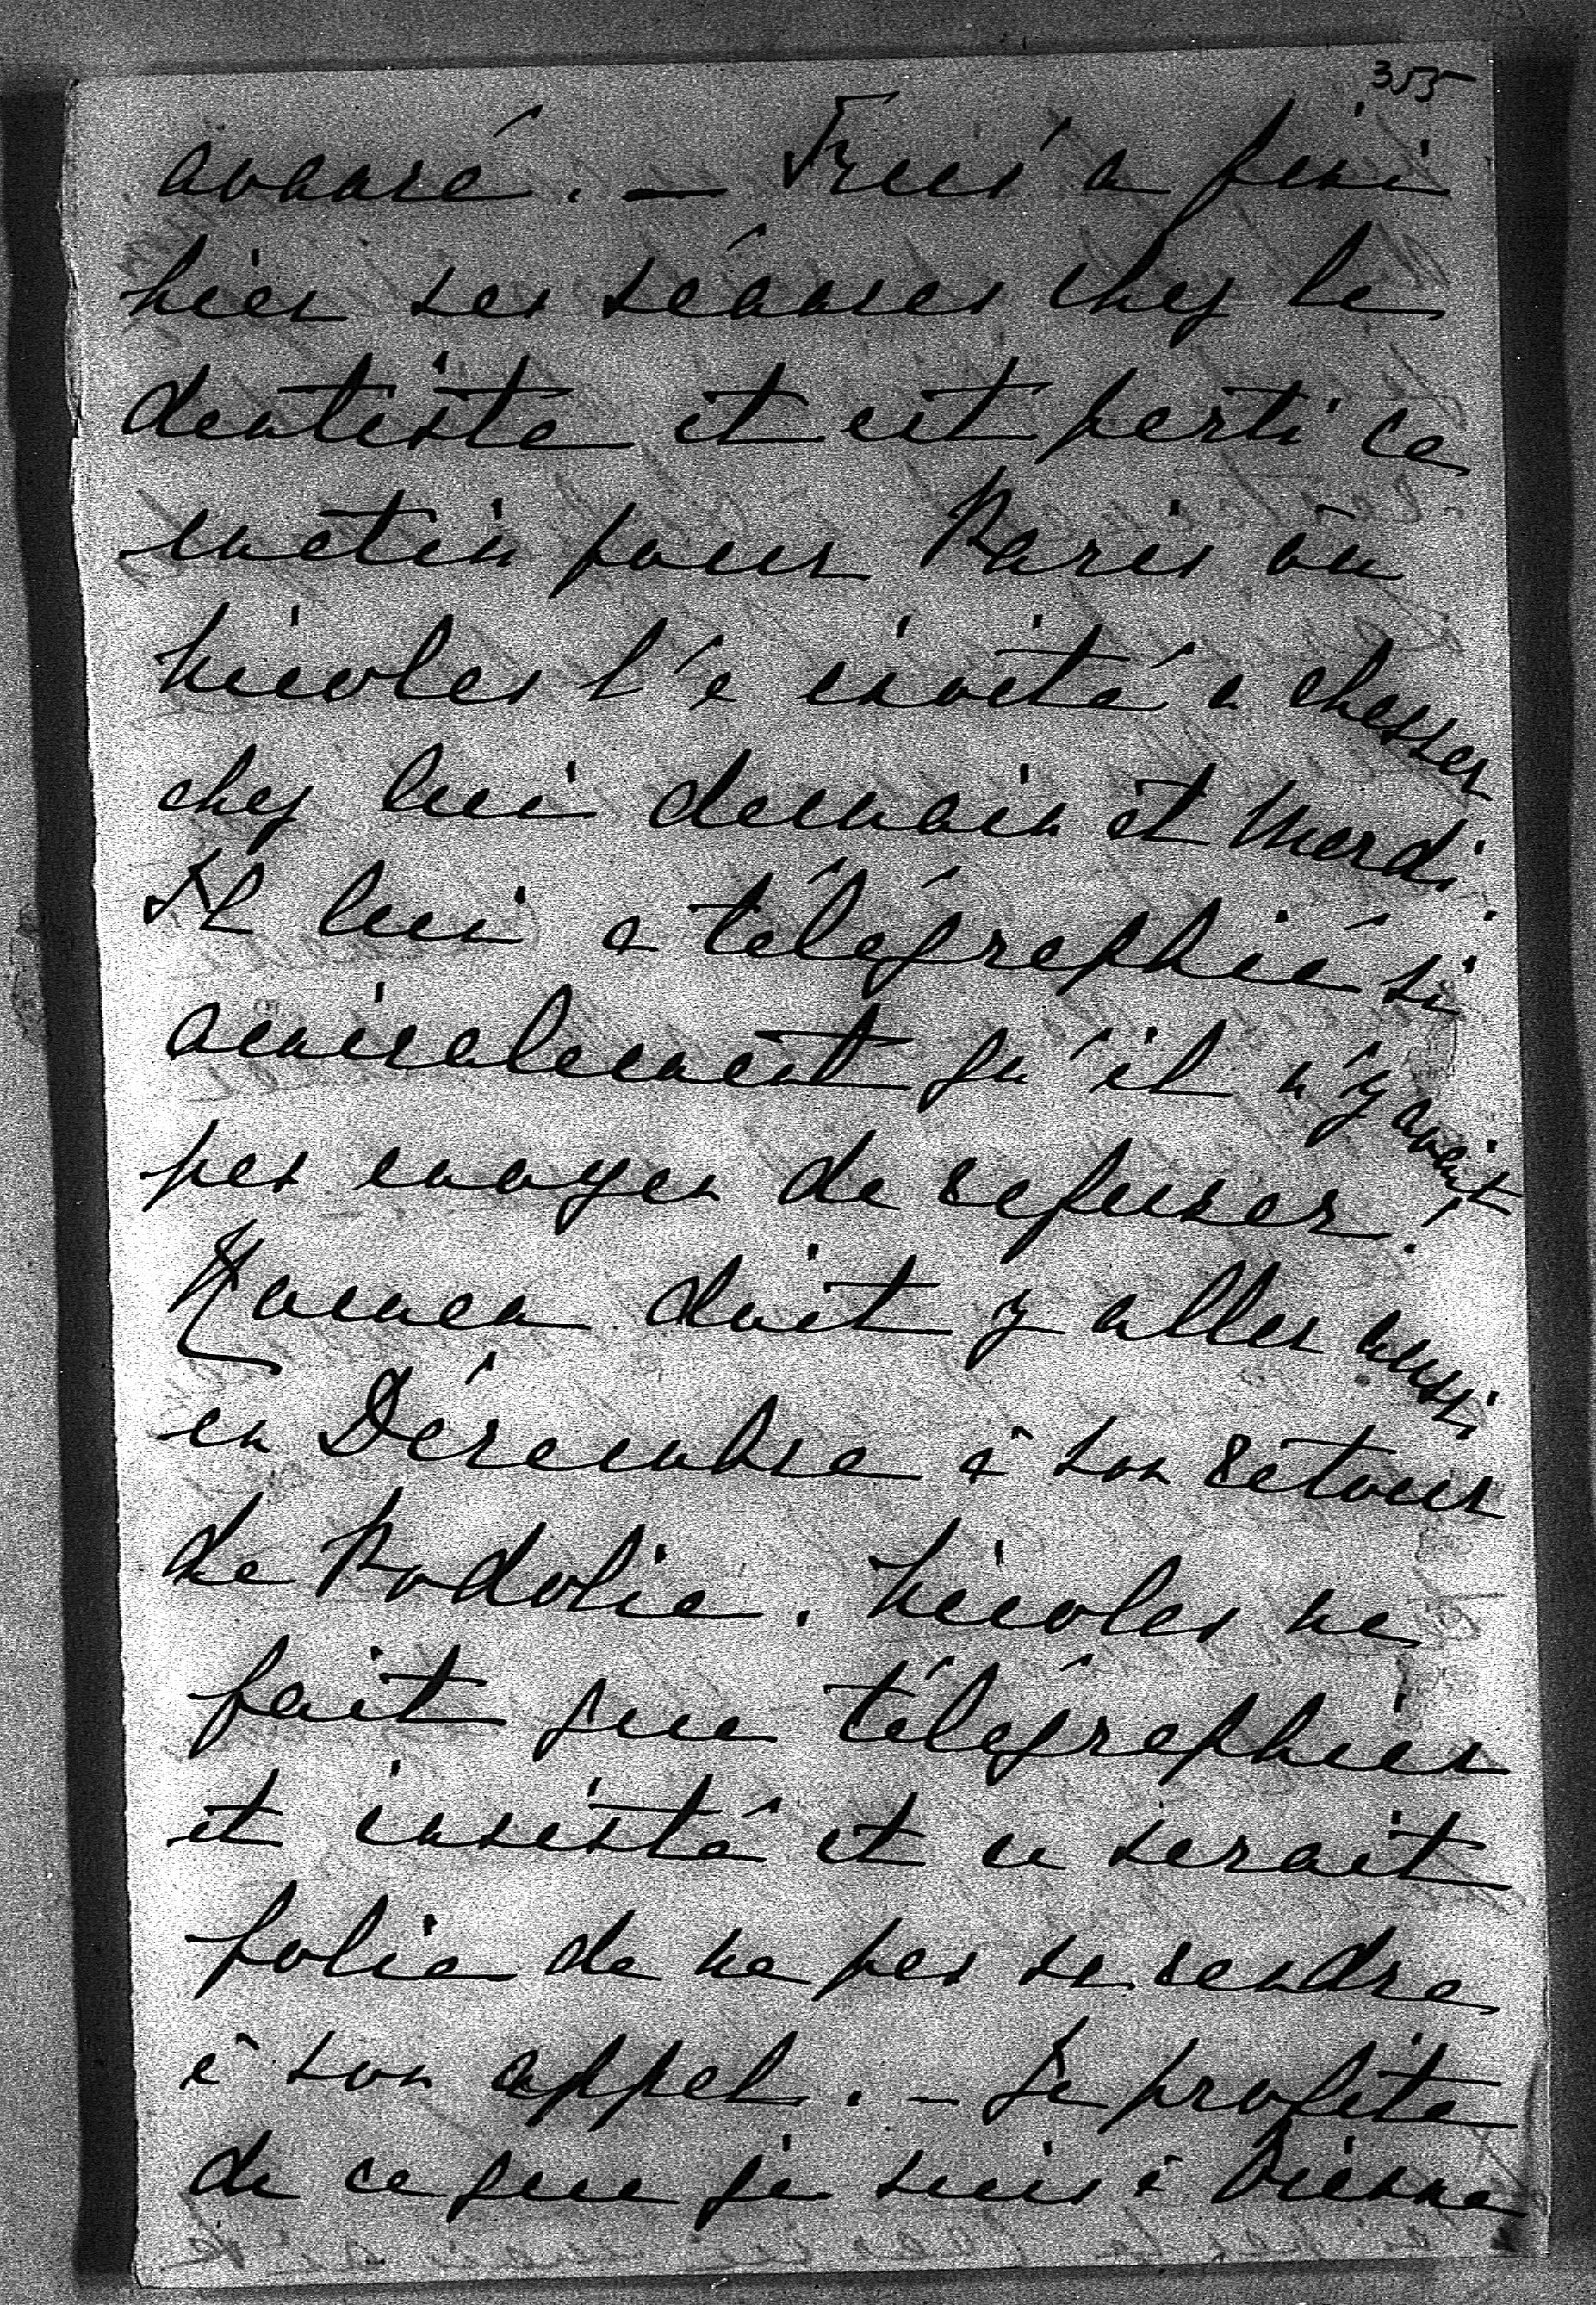 355
avancé. — Frici a fini
hier ses séances chez le
dentiste et est parti ce
matin pour Paris où
Nicolas l'a invité à chasser
chez lui demain et Mardi.
Il lui a télégraphié si
amicalement qu'il n'y avait
pas moyen de refuser!
Maman doit y aller aussi
en Décembre à son retour
de Podolie. Nicolas ne
fait que télégraphier
et insisté et ce serait
folie de ne pas se rendre
à son appel. — Je profite
de ce que je suis à Vienne